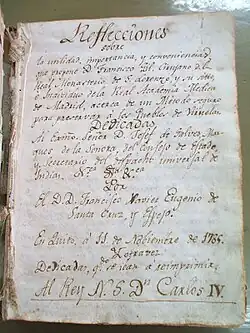 Reflecciones
sobre
la utilidad, importancia, y conveniencias,
que propone Dn Francisco Gil, Cirujano del
Real Monasterio de Sn Lorenzo, y su
de la Real Academia Medica
de Madrid, acerca de un Metodo seguro
para preservar a los Pueblos de Viruelas.
Dedicadas
Al Exmo. Señor Dn Josef de Galvez, Mar-
ques de la Sonora, del Consejo de Estado,
y Secretario del Despacho universal de
Indias.
Por
El D. D. Francisco Xavier Eugenio de
Santa Cruz y Espejo.
En Quito, à 11 de Noviembre de 1785.
Dedicadas,
Al Rey N. S. Dn Carlos IV.